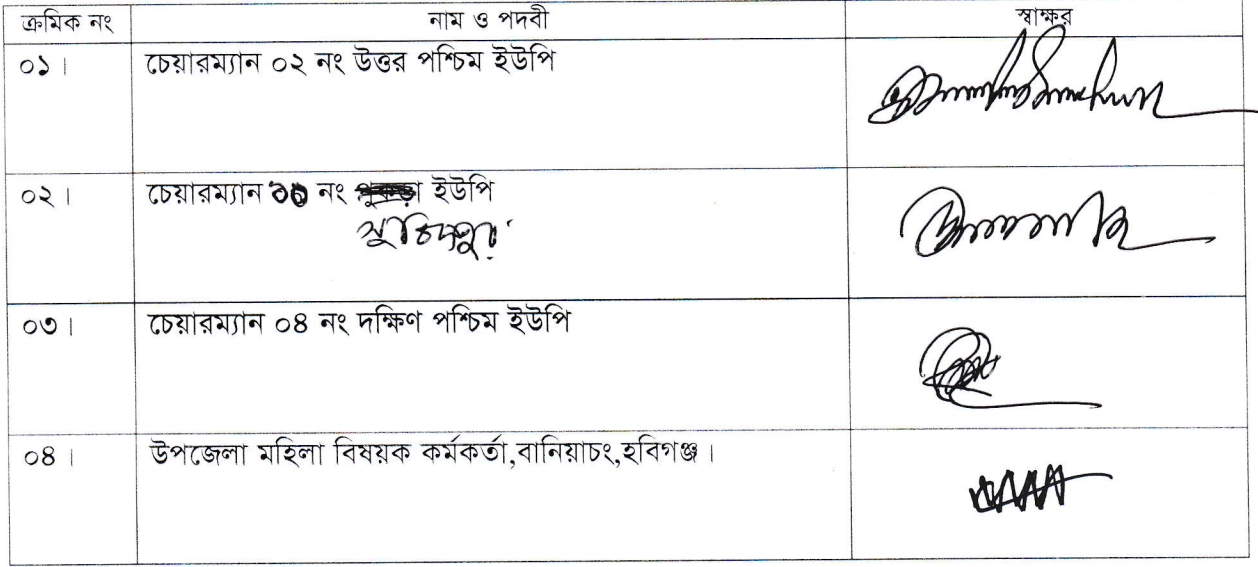 ক্রমিক নং নাম ও পদবী স্বাক্ষর
০১। চেয়ারম্যান ০২ নং উত্তর পশ্চিম ইউপি
০২। চেয়ারম্যান নং ইউপি
০৩। চেয়ারম্যান ০৪ নং দক্ষিণ পশ্চিম ইউপি
০৪। উপজেলা মহিলা বিষয়ক কর্মকর্তা,বানিয়াচং,হবিগঞ্জ।